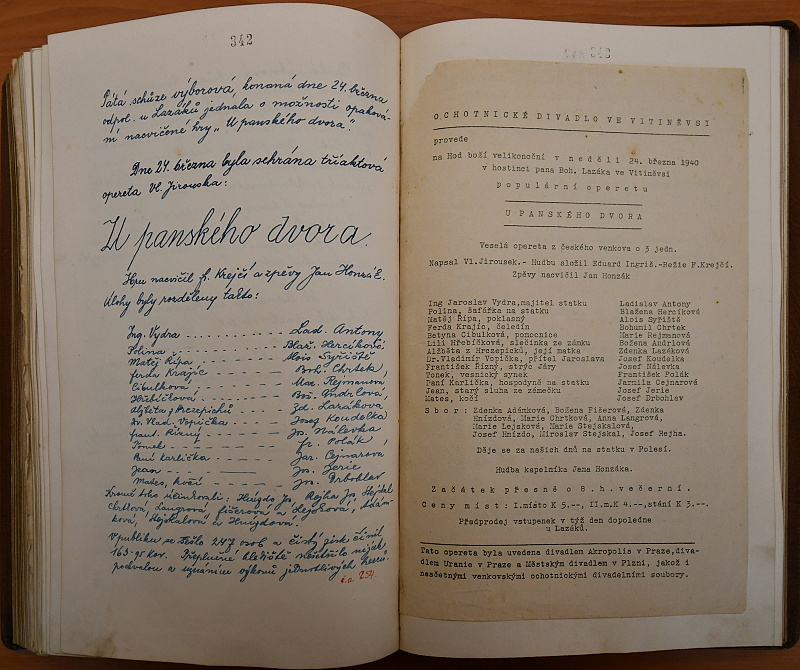 342
Pátá schůze výborová, konaná dne 24. března
odpol. u Lazáků jednala o možnosti opaková-
ní nacvičené hry „U panského dvora“.
Dne 24. března byla sehrána tříaktová
opereta Vl. Jirouska:
U panského dvora.
Hru nacvičil fr. Krejčí a zpěvy Jan Honzák.
Úlohy byly rozděleny takto:
Ing. Vydra Lad. Antony
Polina Blaž. Hercíková
Matěj Řípa Alois Syřiště
Ferda Krajíc Boh. Chrtek,
Cibulková Mar. Rejmanová
Hřibičková Bož. Andrlová,
Alžběta z Hrozepichů Zd. Lazáková
Dr. Vlad. Vopička Josef Koudelka
frant. Řízný Jos. Nálevka
Tonek fr. Polák
Paní Karlička Jar. Cejnarová
Jean Jos. Jerie
Mates, kočí Jos. Drbohlav
Kromě toho účinkovali: Hnízdo Jos. Rejha Jos. Stejskal
Chrtková, Langrová, Fišerová a Lejsková, Adám-
ková, Stejskalová a Hnízdová.
V publiku se sešlo 247 osob a čistý zisk činil
163.95 kor. Přeplněné hlediště nešetřilo nijak
pochvalou a uznáním výkonů jednotlivých herců.
č.a 254.
OCHOTNICKÉ DIVADLO VE VITINĚVSI
provede
na Hod boží velikonoční v neděli 24. března 1940
v hostinci pana Boh. Lazáka ve Vitiněvsi
populární operetu
U PANSKÉHO DVORA
Veselá opereta z českého venkova o 3 jedn.
Napsal Vl.Jirousek.- Hudbu složil Eduard Ingriš.-Režie F.Krejčí.
Zpěvy nacvičil Jan Honzák
Ing Jaroslav Vydra,majitel statku Ladislav Antony
Polina, šafářka na statku Blažena Hercíková
Matěj Řípa, poklasný Alois Syřiště
Ferda Krajíc, čeledín Bohumil Chrtek
Betyna Cibulková, pomocnice Marie Rejmanová
Lili Hřebíčková, slečinka ze zámku Božena Andrlová
Alžběta z Hrozepichů, její matka Zdenka Lazáková
Dr.Vladimír Vopička, přítel Jaroslava Josef Koudelka
František Řízný, strýc Járy Josef Nálevka
Tonek, vesnický synek František Polák
Paní Karlička, hospodyně na statku Jarmila Cejnarová
Jean, starý sluha ze zámečku Josef Jerie
Mates, kočí Josef Drbohlav
Sbor: Zdenka Adámková, Božena Fišerová, Zdenka
Hnízdová, Marie Chrtková, Anna Langrová,
Marie Lejsková, Marie Stejskalová,
Josef Hnízdo, Miroslav Stejskal, Josef Rejha.
Děje se za našich dnů na statku v Polesí.
Hudba kapelníka Jana Honzáka.
Začátek přesně o 8.h.večerní.
Ceny míst: I.místo K 5.--, II.m.K 4.--,stání K 3.--.
Předprodej vstupenek v týž den dopoledne
u Lazáků.
Tato opereta byla uvedena divadlem Akropolis v Praze,diva-
dlem Uranie v Praze a Městským divadlem v Plzni, jakož i
nesčetnými venkovskými ochotnickými divadelními soubory.